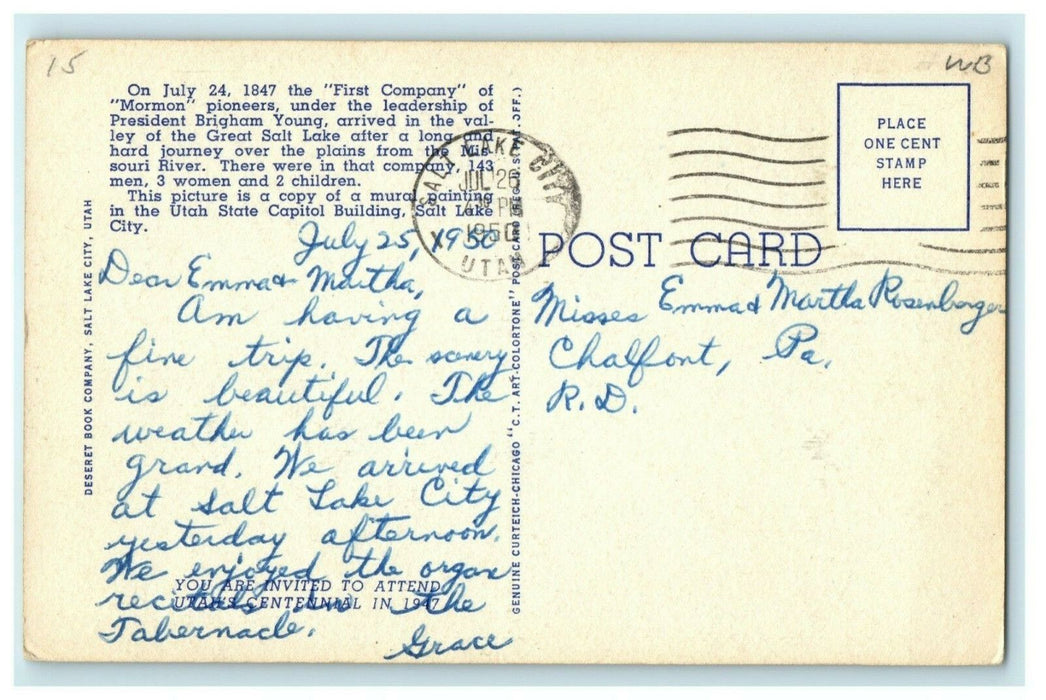 15
WB
On July 24, 1847 the "First Company" of
"Mormon" pioneers, under the leadership of
President Brigham Young, arrived in the val-
ley of the Great Salt Lake after a long and
hard journey over the plains from the Mis-
souri River. There were in that company, 143
men, 3 women and 2 children.
This picture is a copy of a mural painting
in the Utah State Capitol Building, Salt Lake
City.
SALT LAKE CITY
JUL 26
PM
1950
UTAH
PLACE
ONE CENT
STAMP
HERE
POST CARD
July 25, 1950
Dear Emma & Martha,
Am having a
fine trip. The scenery
is beautiful. The
weather has been
grand. We arrived
at Salt Lake City
yesterday afternoon.
We enjoyed the organ
recitals in the
Tabernacle.
Grace
YOU ARE INVITED TO ATTEND
UTAH'S CENTENNIAL IN 1947
Misses Emma & Martha Rosenberger
Chalfont, Pa.
R. D.
DESERET BOOK COMPANY, SALT LAKE CITY, UTAH
GENUINE CURTEICH-CHICAGO "C.T. ART-COLORTONE" POST CARD (REG. U.S. PAT. OFF.)